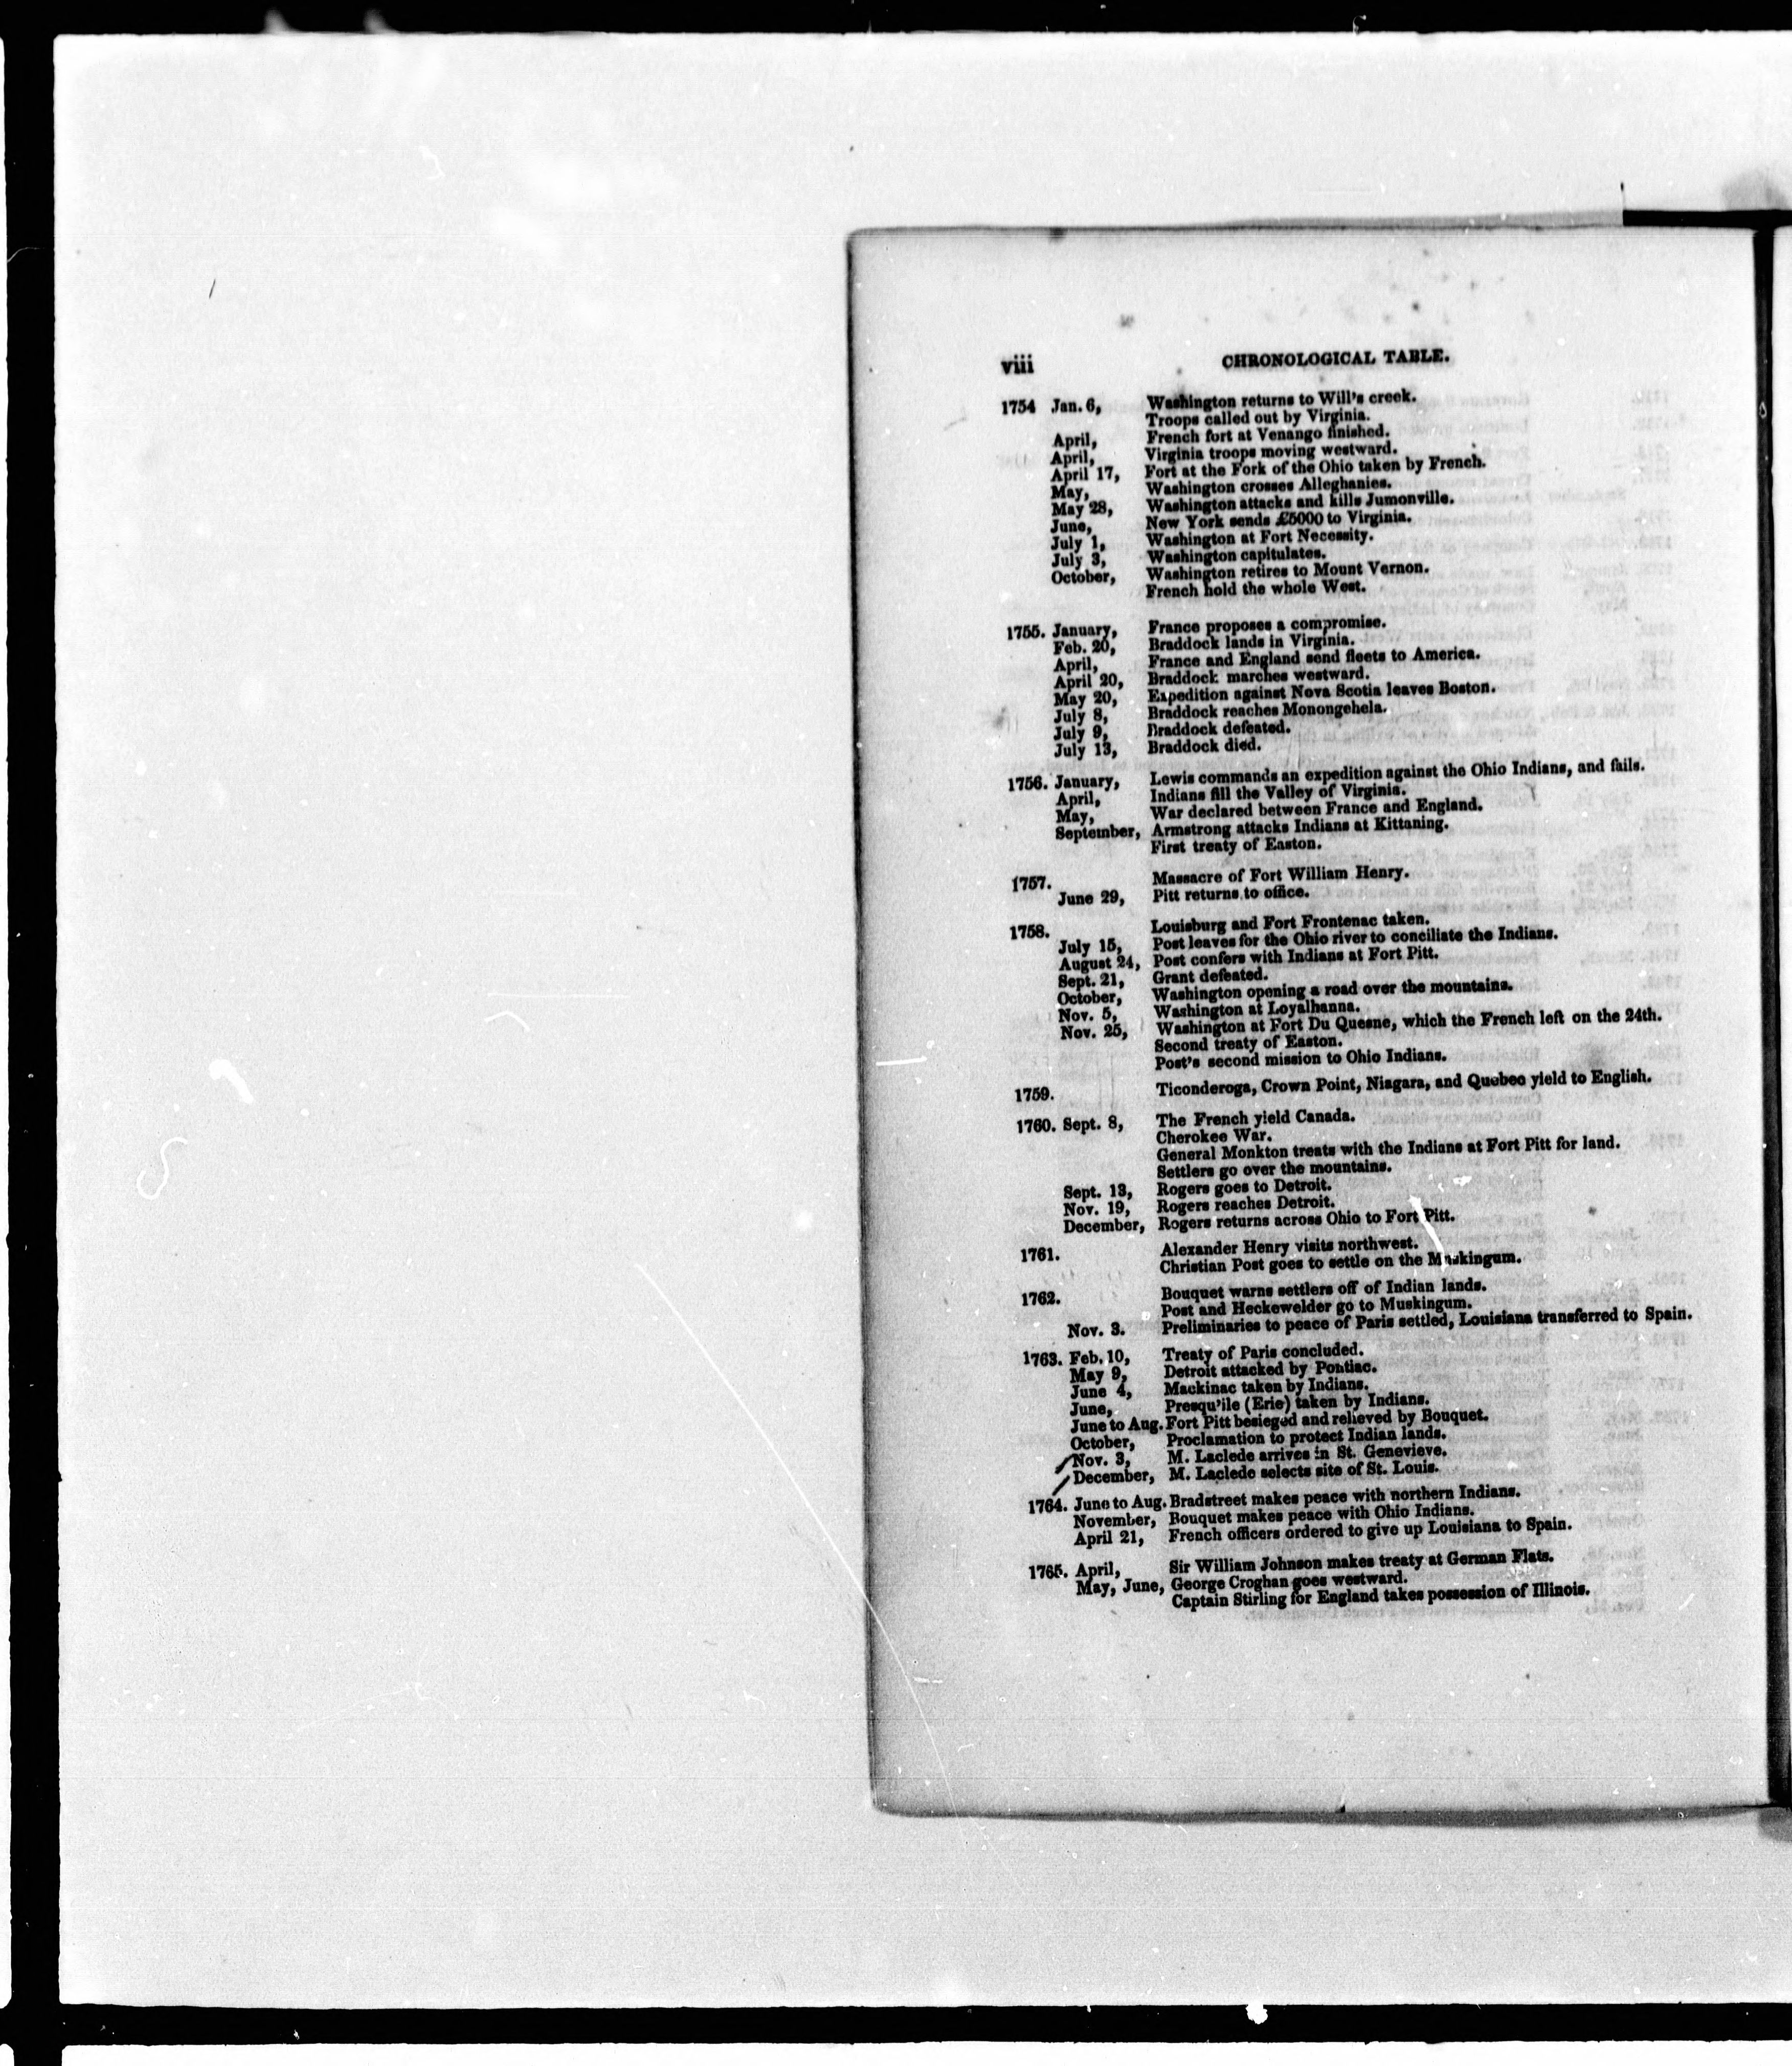 viii CHRONOLOGICAL TABLE.
1754 Jan. 6, Washington returns to Will's creek.
Troops called out by Virginia.
April, French fort at Venango finished.
April, Virginia troops moving westward.
April 17, Fort at the Fork of the Ohio taken by French.
May, Washington crosses Alleghanies.
May 28, Washington attacks and kills Jumonville.
June, New York sends £5000 to Virginia.
July 1, Washington at Fort Necessity.
July 3, Washington capitulates.
October, Washington retires to Mount Vernon.
French hold the whole West.
1755. January, France proposes a compromise.
Feb. 20, Braddock lands in Virginia.
April, France and England send fleets to America.
April 20, Braddock marches westward.
May 20, Expedition against Nova Scotia leaves Boston.
July 8, Braddock reaches Monongehela.
July 9, Braddock defeated.
July 13, Braddock died.
1756. January, Lewis commands an expedition against the Ohio Indians, and fails.
April, Indians fill the Valley of Virginia.
May, War declared between France and England.
September, Armstrong attacks Indians at Kittaning.
First treaty of Easton.
1757. Massacre of Fort William Henry.
June 29, Pitt returns to office.
1758. Louisburg and Fort Frontenac taken.
July 15, Post leaves for the Ohio river to conciliate the Indians.
August 24, Post confers with Indians at Fort Pitt.
Sept. 21, Grant defeated.
October, Washington opening a road over the mountains.
Nov. 5, Washington at Loyalhanna.
Nov. 25, Washington at Fort Du Quesne, which the French left on the 24th.
Second treaty of Easton.
Post's second mission to Ohio Indians.
1759. Ticonderoga, Crown Point, Niagara, and Quebec yield to English.
1760. Sept. 8, The French yield Canada.
Cherokee War.
General Monkton treats with the Indians at Fort Pitt for land.
Settlers go over the mountains.
Sept. 13, Rogers goes to Detroit.
Nov. 19, Rogers reaches Detroit.
December, Rogers returns across Ohio to Fort Pitt.
1761. Alexander Henry visits northwest.
Christian Post goes to settle on the Muskingum.
1762. Bouquet warns settlers off of Indian lands.
Post and Heckewelder go to Muskingum.
Nov. 3. Preliminaries to peace of Paris settled, Louisiana transferred to Spain.
1763. Feb. 10, Treaty of Paris concluded.
May 9, Detroit attacked by Pontiac.
June 4, Mackinac taken by Indians.
June, Presqu'ile (Erie) taken by Indians.
June to Aug. Fort Pitt besieged and relieved by Bouquet.
October, Proclamation to protect Indian lands.
Nov. 3, M. Laclede arrives in St. Genevieve.
December, M. Laclede selects site of St. Louis.
1764. June to Aug. Bradstreet makes peace with northern Indians.
November, Bouquet makes peace with Ohio Indians.
April 21, French officers ordered to give up Louisiana to Spain.
1765. April, Sir William Johnson makes treaty at German Flats.
May, June, George Croghan goes westward.
Captain Stirling for England takes possession of Illinois.